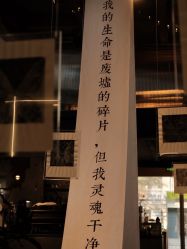 我的生命是废墟的碎片，但我灵魂干净